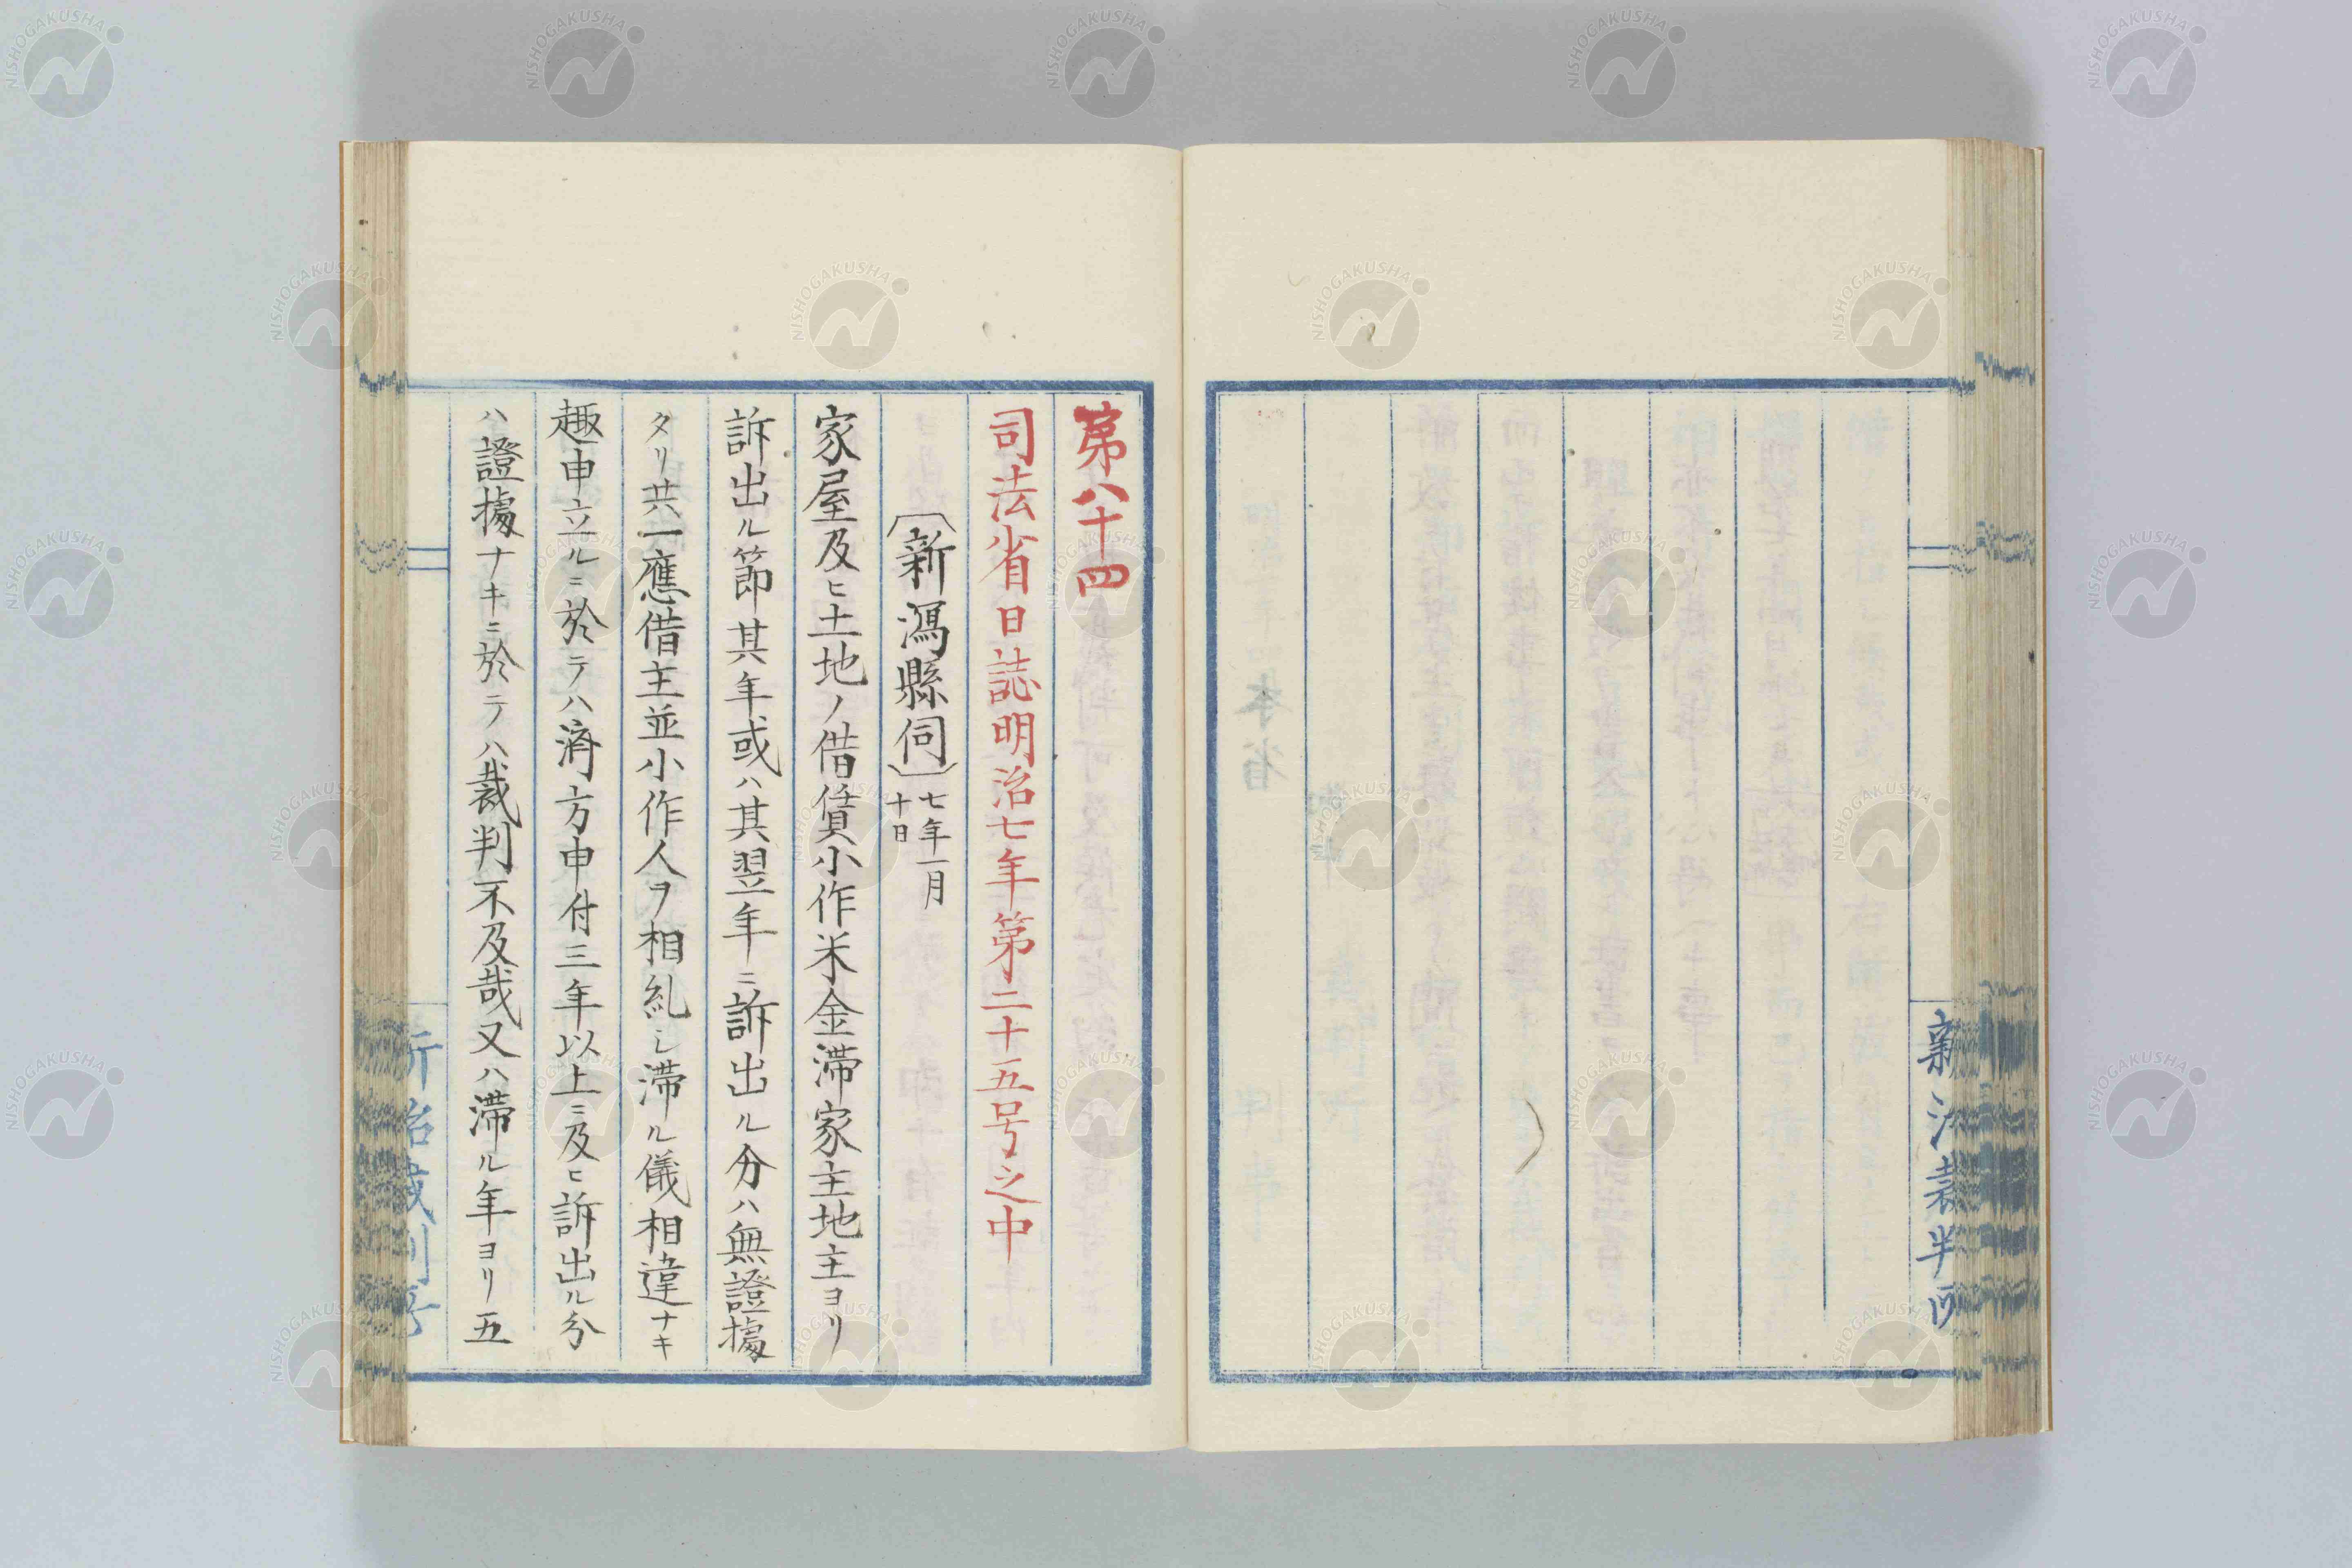 第八十四
司法省日誌明治七年第二十五号之中
〔新潟縣伺〕七年一月十日
家屋及ヒ土地ノ借賃小作米金滞家主地主ヨリ
訴出ル節其年或ハ其翌年ニ訴出ル分ハ無證據
タリ共一應借主並小作人ヲ相糺シ滞ル儀相違ナキ
趣申立ルニ於テハ濟方申付三年以上ニ及ヒ訴出ル分
ハ證據ナキニ於テハ裁判不及哉又ハ滞ル年ヨリ五